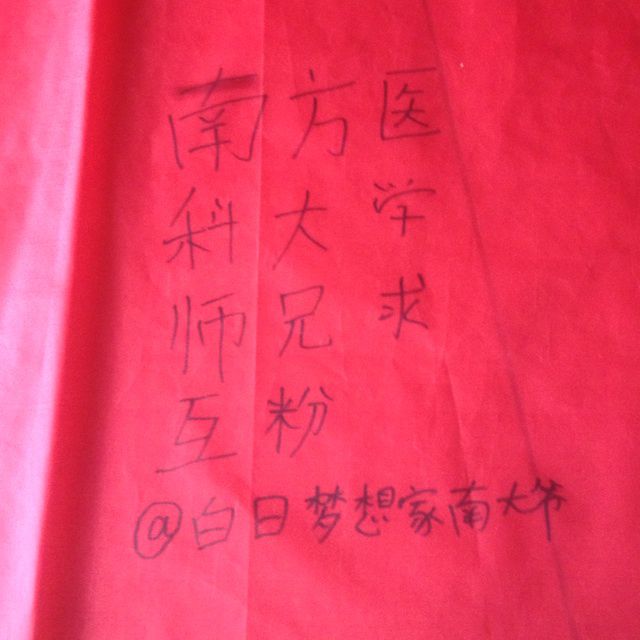 南方医
科大学
师兄求
互粉
@白日梦想家南大爷